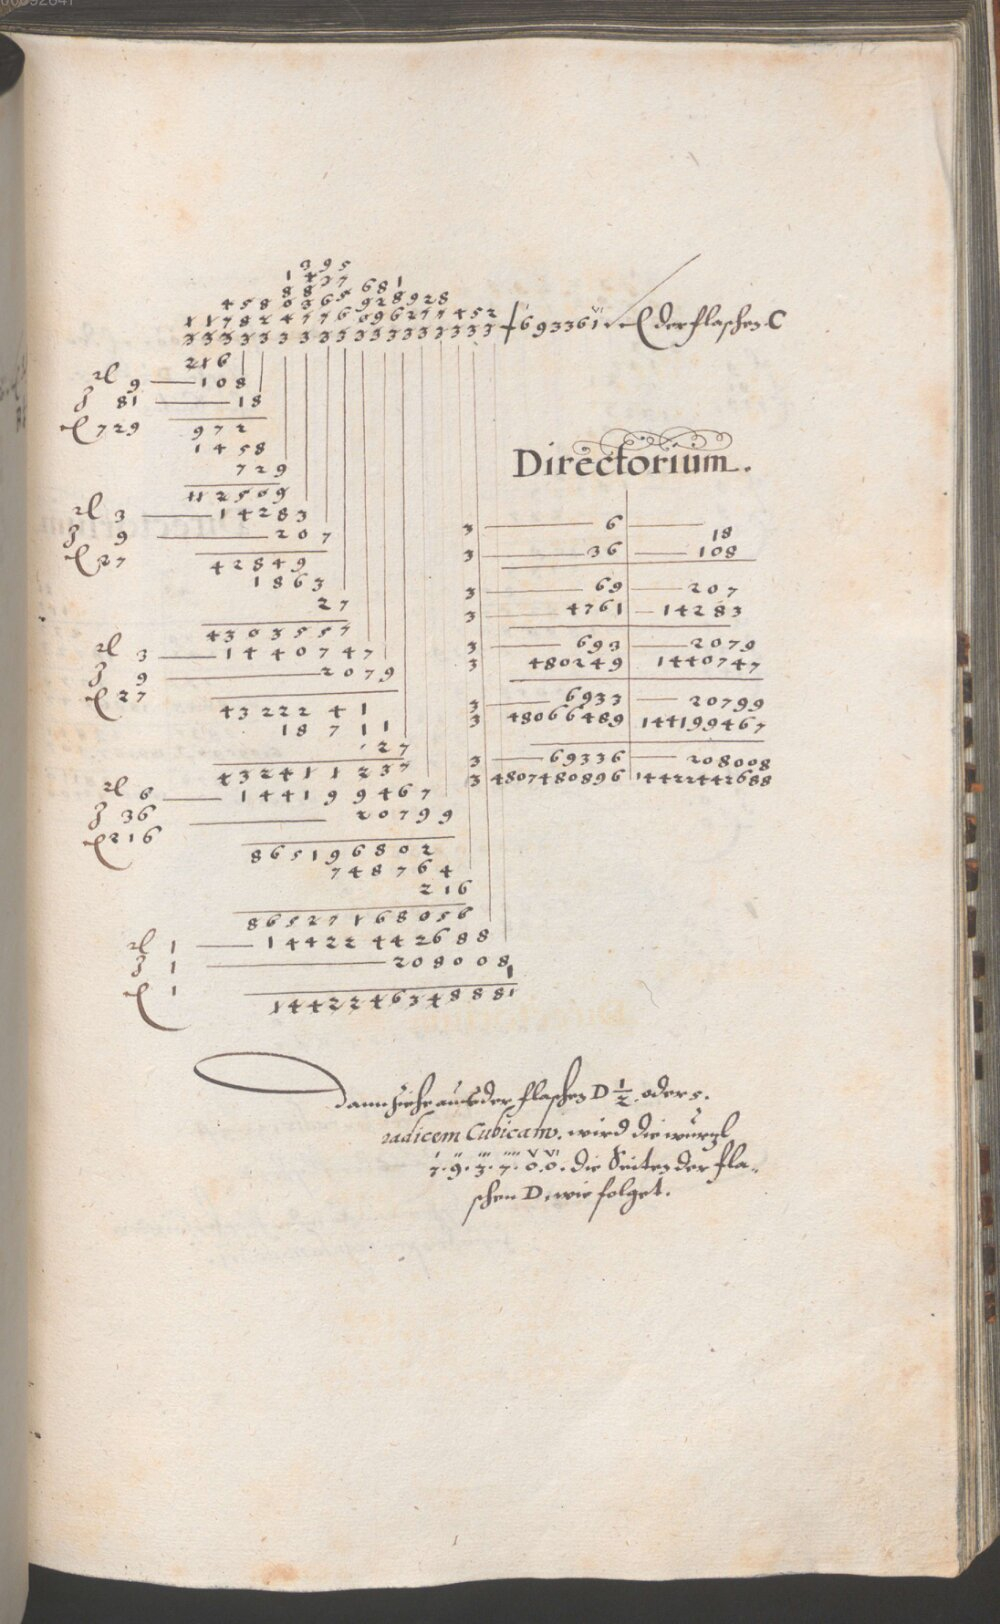 3 9 5
6 9 3 3 6 1 der flaschen C
2 1 6
9 1 0 8
8 1 1 8
7 2 9 9 7 2
1 4 5 8
7 2 9
1 1 2 5 0 9
3 1 4 2 8 3
9 2 0 7
2 7 4 2 8 4 9
1 8 6 3
2 7
4 3 0 3 5 5 7
3 1 4 4 0 7 4 7
9 2 0 7 9
2 7 4 3 2 2 2 4 1
1 8 7 1 1
2 7
4 3 2 4 1 1 2 3 7
6 1 4 4 1 9 9 4 6 7
3 6 2 0 7 9 9
2 1 6 8 6 5 1 9 6 8 0 2
7 4 8 7 6 4
2 1 6
8 6 5 2 7 1 6 8 0 5 6
1 1 4 4 2 2 4 4 2 6 8 8
1 2 0 8 0 0 8
1 1
1 4 4 2 2 4 6 3 4 8 8 8 1
Directorium.
3 6 18
3 36 108
3 69 207
3 4761 14283
3 693 2079
3 480249 1440747
3 6933 20799
3 48066489 144199467
3 69336 208008
3 4807480896 14422442688
Dann ziehe aus der flaschen D 1/2 oder 5.
radicem Cubicam. wird die wurzl
7. 9. 3. 7. 0. 0. die Seiten der fla-
schen D, wie folget.